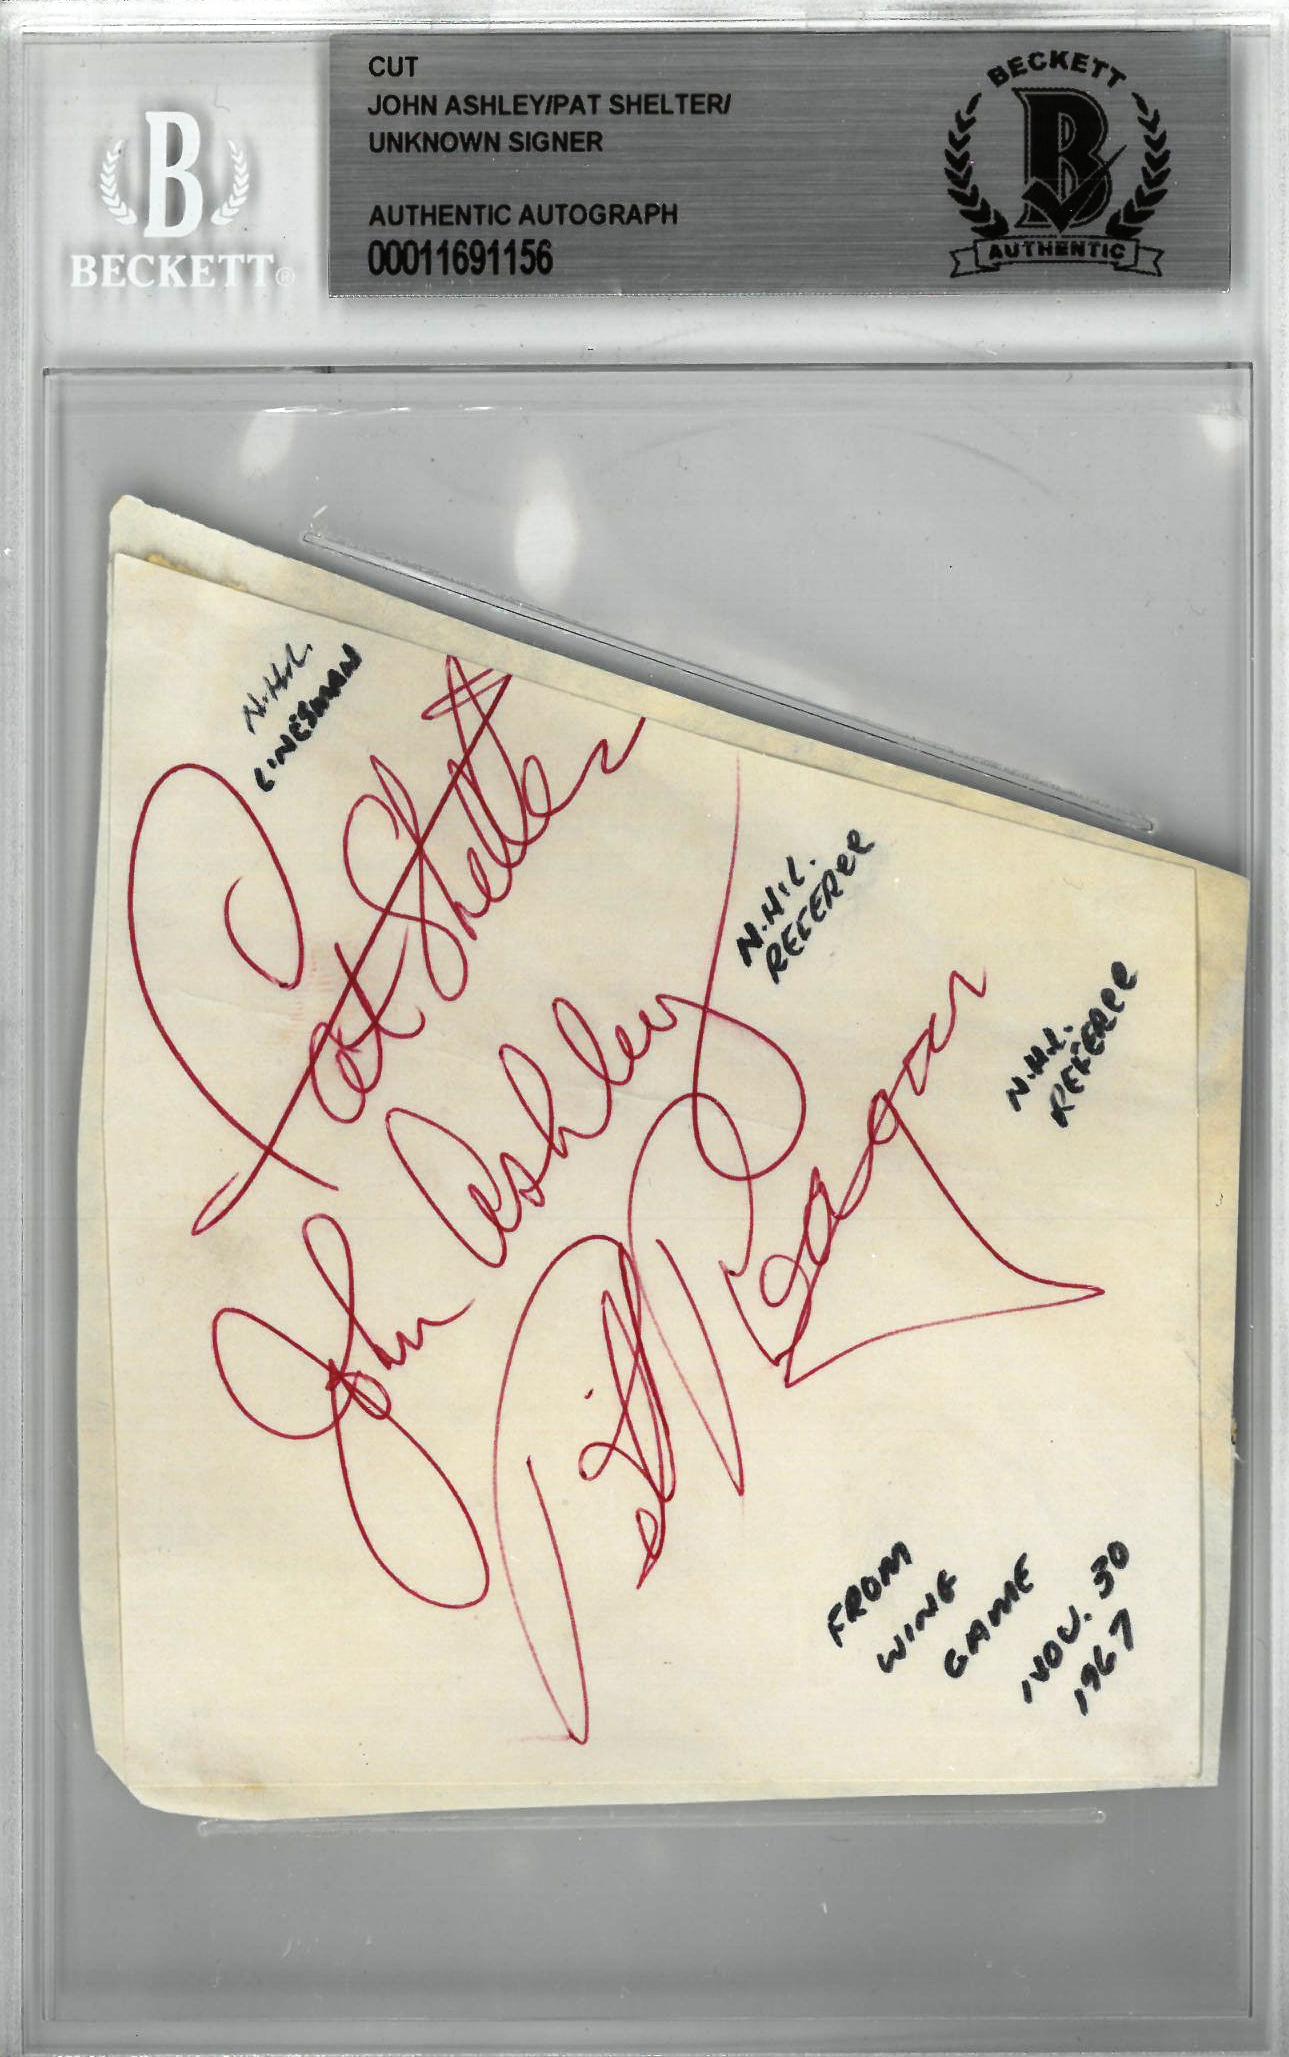 CUT
JOHN ASHLEY/PAT SHELTER/
UNKNOWN SIGNER
AUTHENTIC AUTOGRAPH
00011691156
B
BECKETT®
BECKETT
B
AUTHENTIC
N.H.L.
LINESMAN
Pat Shetler
N.H.L.
REFEREE
John Ashley
N.H.L.
REFEREE
Bill
FROM
WING
GAME
NOV. 30
1967